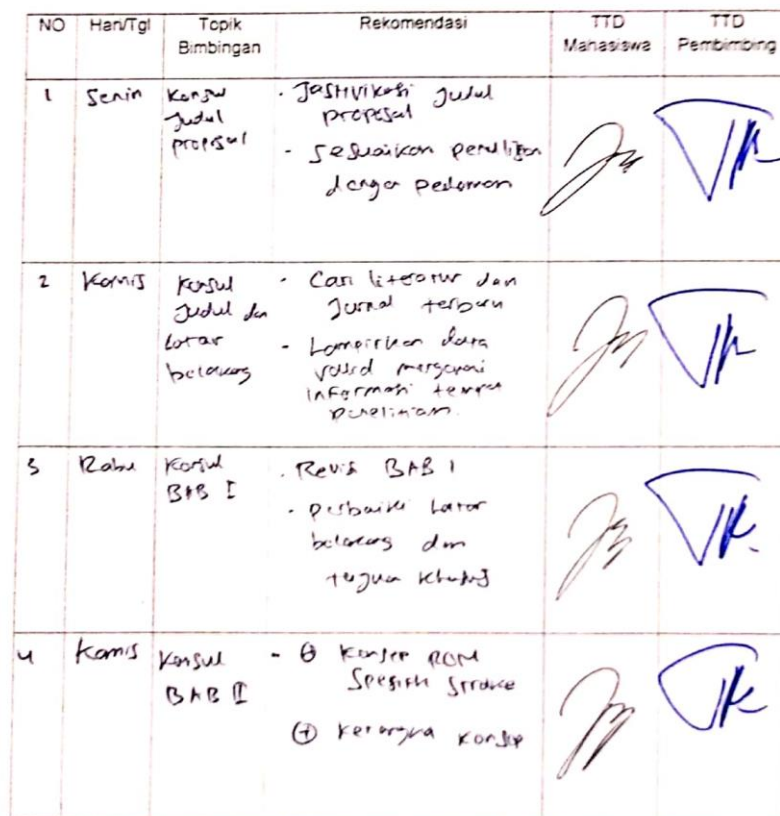 NO Hari/Tgl Topik Bimbingan Rekomendasi TTD Mahasiswa TTD Pembimbing
1 Senin Konsul Judul proposal
- Jastivikasi Judul
proposal
- Sesuaikan penulisan
dengan pedoman
2 Kamis Konsul Judul dan Latar belakang
- Cari literatur dan
Jurnal terbaru
- Lampirkan data
valid mengenai
informasi tempat
penelitian.
3 Rabu Konsul BAB I
- Revisi BAB I
- perbaiki Latar
belakang dan
tujuan khusus
4 Kamis Konsul BAB II
- ⊕ Konsep ROM
Spesifik Stroke
⊕ Kerangka Konsep